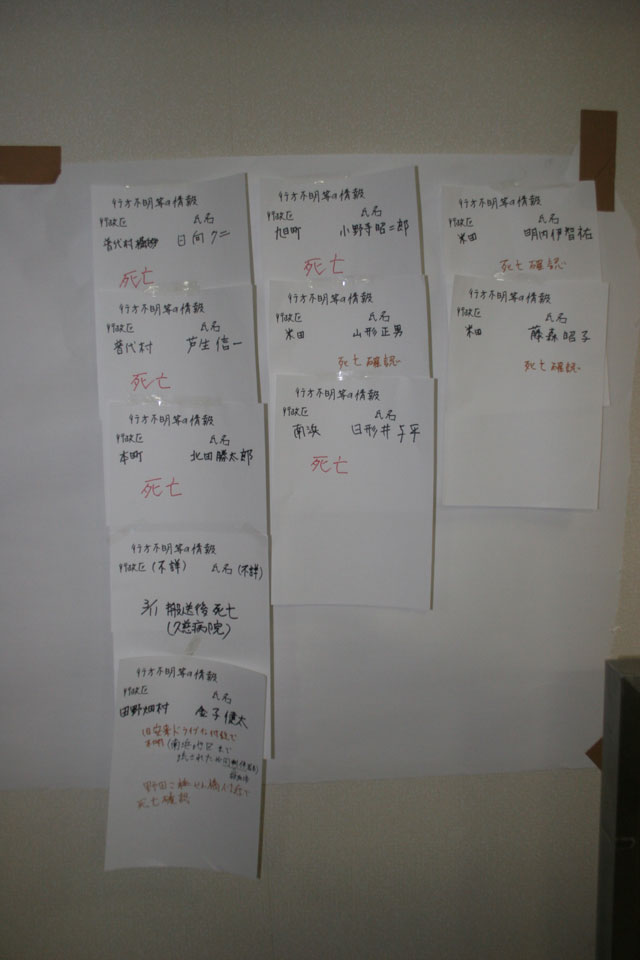 行方不明等の情報
行政区 氏名
普代村 日向クニ
死亡
行方不明等の情報
行政区 氏名
普代村 芦生信一
死亡
行方不明等の情報
行政区 氏名
本町 北田勝太郎
死亡
行方不明等の情報
行政区(不詳) 氏名(不詳)
3/11 搬送後死亡
(久慈病院)
行方不明等の情報
行政区 氏名
田野畑村 金子健太
付近で
(南浜 まで
流された
野田 付近で
死亡確認
行方不明等の情報
行政区 氏名
旭町 小野寺昭二郎
死亡
行方不明等の情報
行政区 氏名
米田 山形正男
死亡確認
行方不明等の情報
行政区 氏名
南浜 日形井与平
死亡
行方不明等の情報
行政区 氏名
米田 明内伊智祐
死亡確認
行方不明等の情報
行政区 氏名
米田 藤森昭子
死亡確認